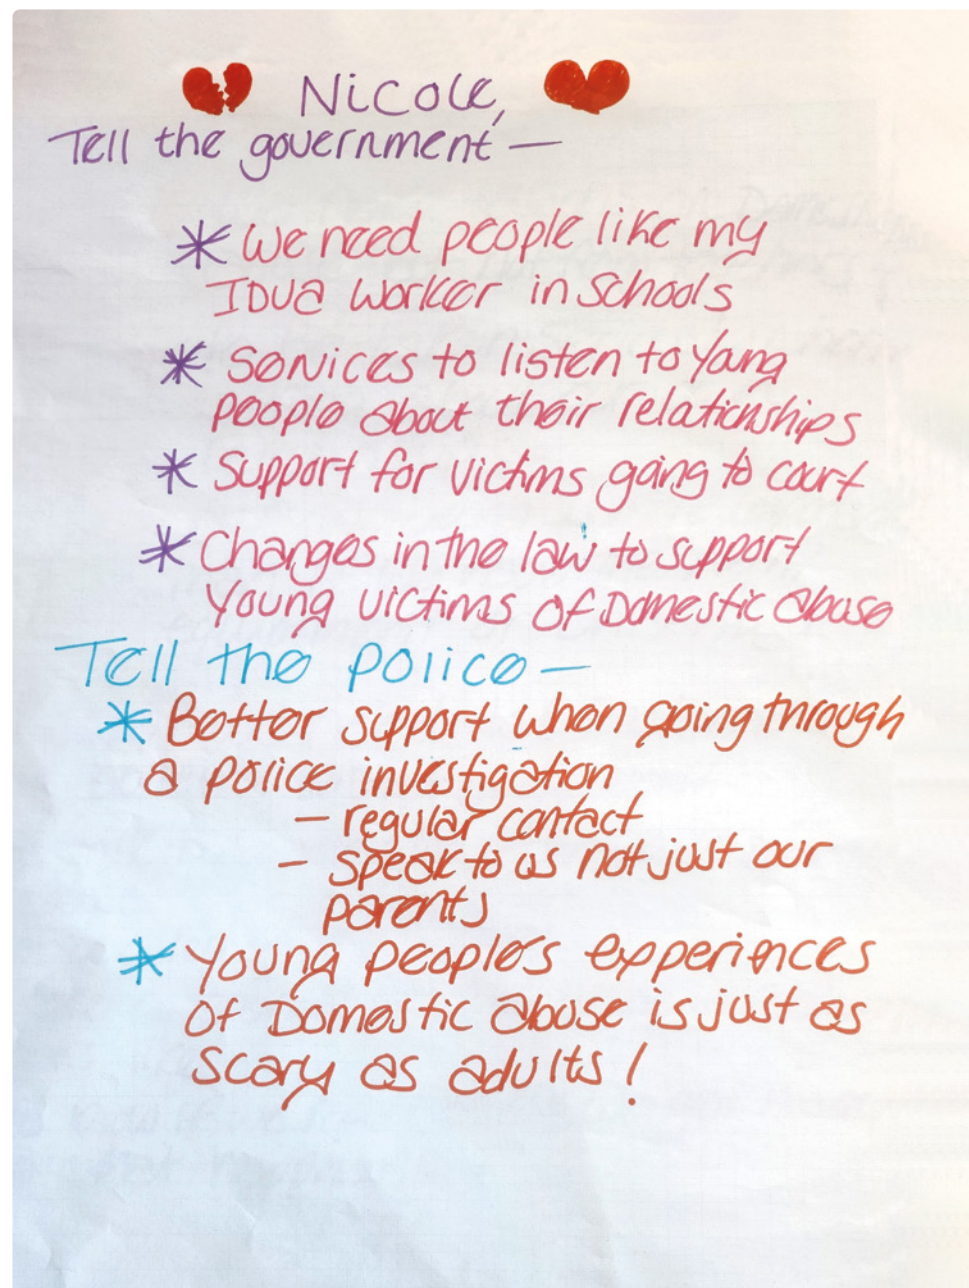 Nicole,
Tell the government —
* We need people like my
IDVA worker in Schools
* Services to listen to Young
people about their relationships
* Support for victims going to court
* Changes in the law to support
Young victims of Domestic abuse
Tell the police —
* Better support when going through
a police investigation
— regular contact
— speak to us not just our
parents
* Young people's experiences
of Domestic abuse is just as
scary as adults!